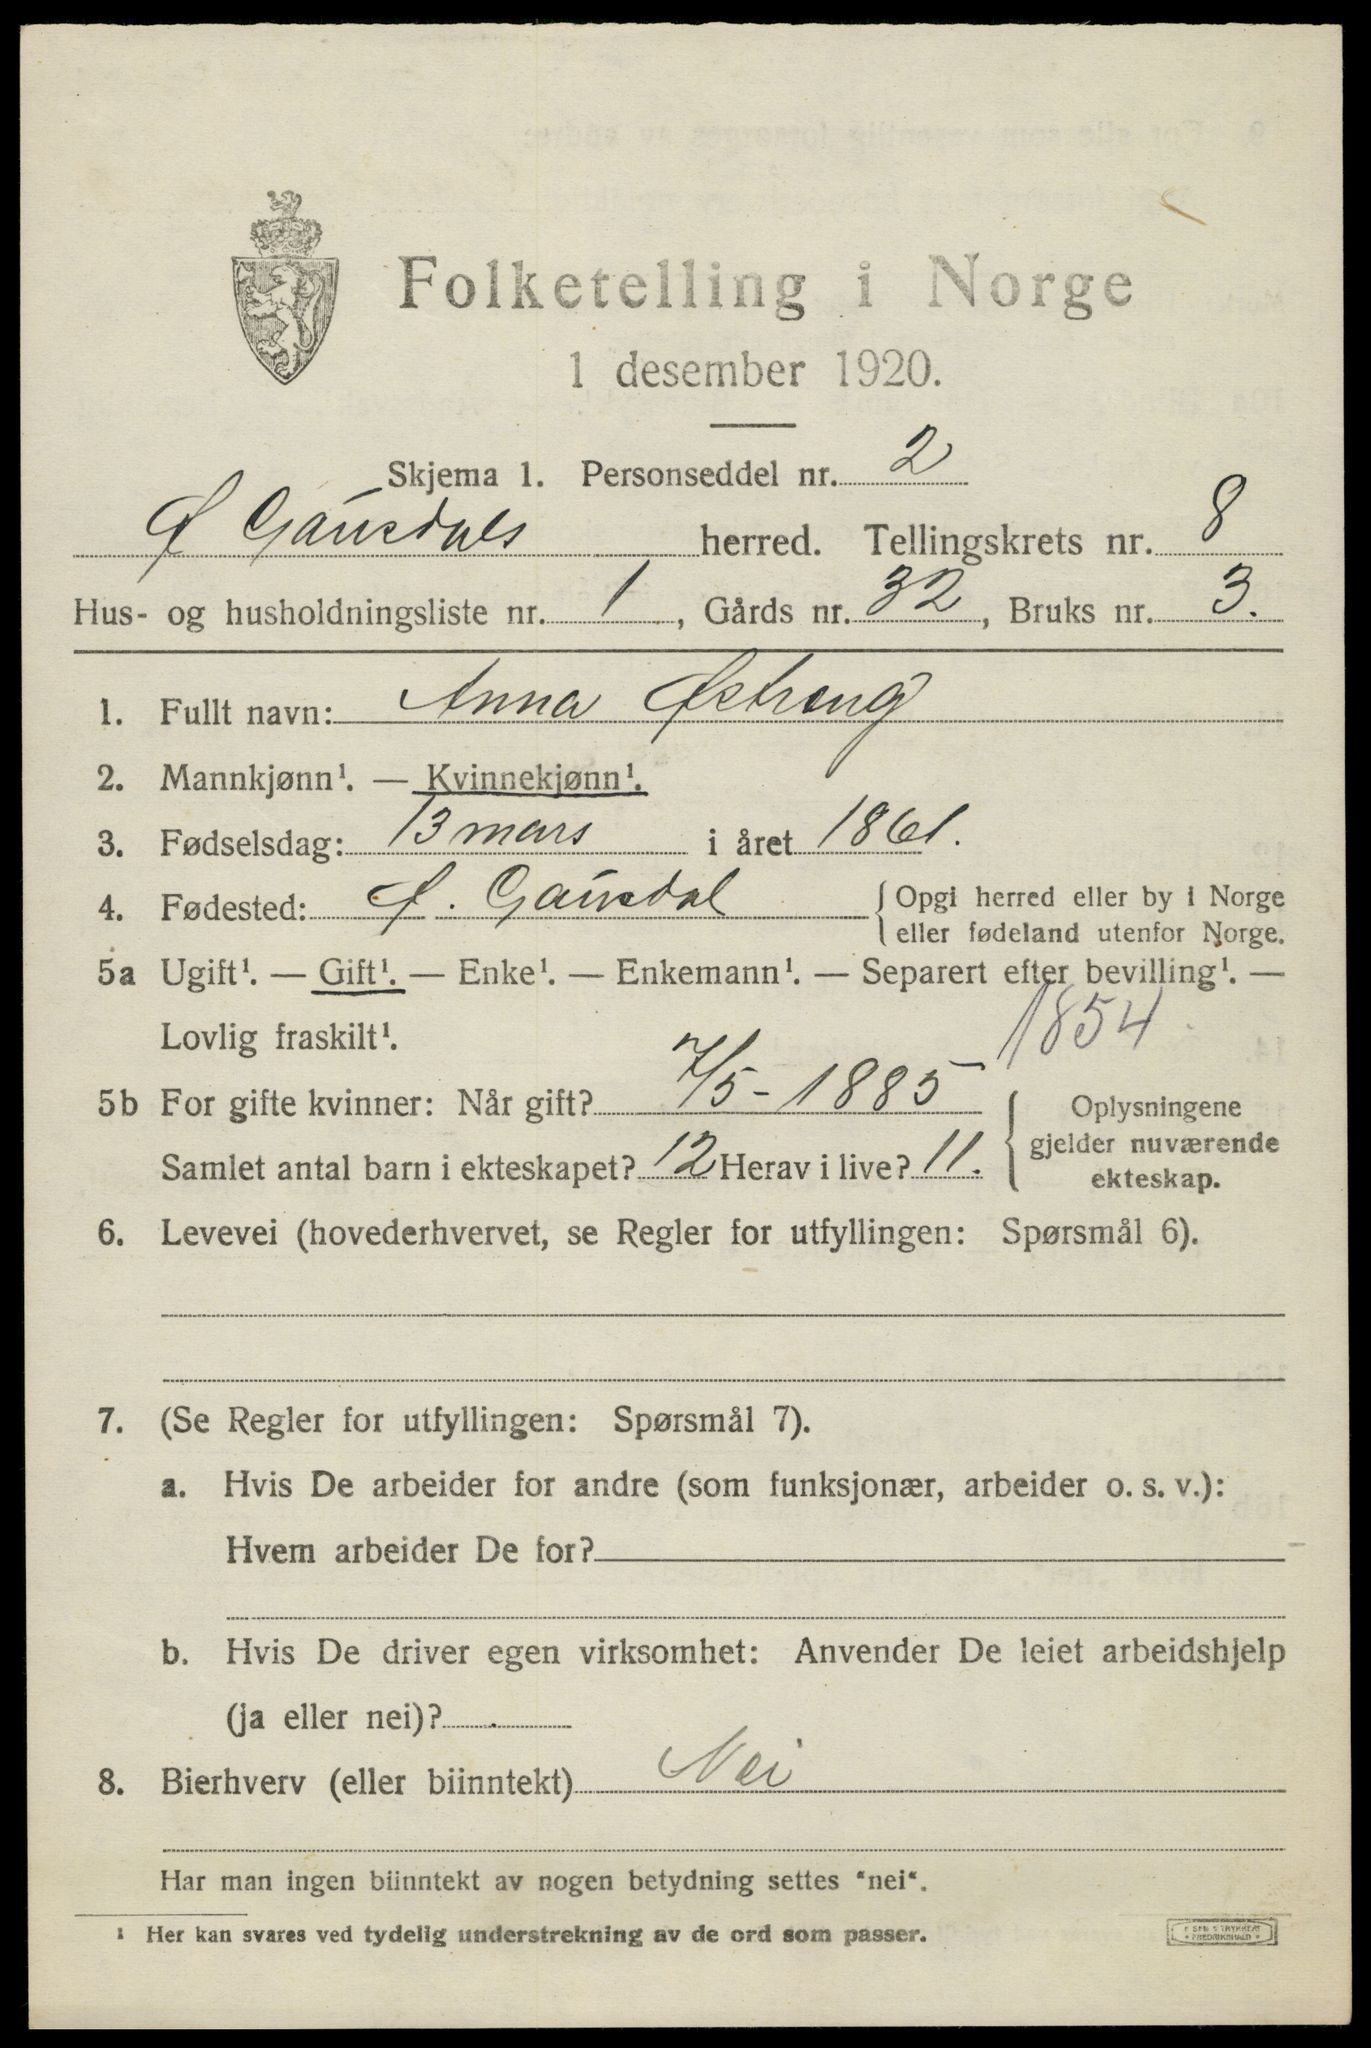 Folketelling i Norge
1 desember 1920.
Skjema 1. Personseddel nr. 2
Ø Gausdals herred. Tellingskrets nr. 8
Hus- og husholdningsliste nr. 1, Gårds nr. 32, Bruks nr. 3.
1. Fullt navn: Anna Østreng
2. Mannkjønn¹. — Kvinnekjønn¹.
3. Fødselsdag: 13 mars i året 1861.
4. Fødested: Ø. Gausdal { Opgi herred eller by i Norge
eller fødeland utenfor Norge.
5a Ugift¹. — Gift¹. — Enke¹. — Enkemann¹. — Separert efter bevilling¹. —
Lovlig fraskilt¹. 1854
5b For gifte kvinner: Når gift? 7/5 - 1885 { Oplysningene
gjelder nuværende
ekteskap.
Samlet antal barn i ekteskapet? 12 Herav i live? 11.
6. Levevei (hovederhvervet, se Regler for utfyllingen: Spørsmål 6).
7. (Se Regler for utfyllingen: Spørsmål 7).
a. Hvis De arbeider for andre (som funksjonær, arbeider o. s. v.):
Hvem arbeider De for?
b. Hvis De driver egen virksomhet: Anvender De leiet arbeidshjelp
(ja eller nei)?
8. Bierhverv (eller biinntekt) Nei
Har man ingen biinntekt av nogen betydning settes "nei".
¹ Her kan svares ved tydelig understrekning av de ord som passer.
FREDRIKSHALD